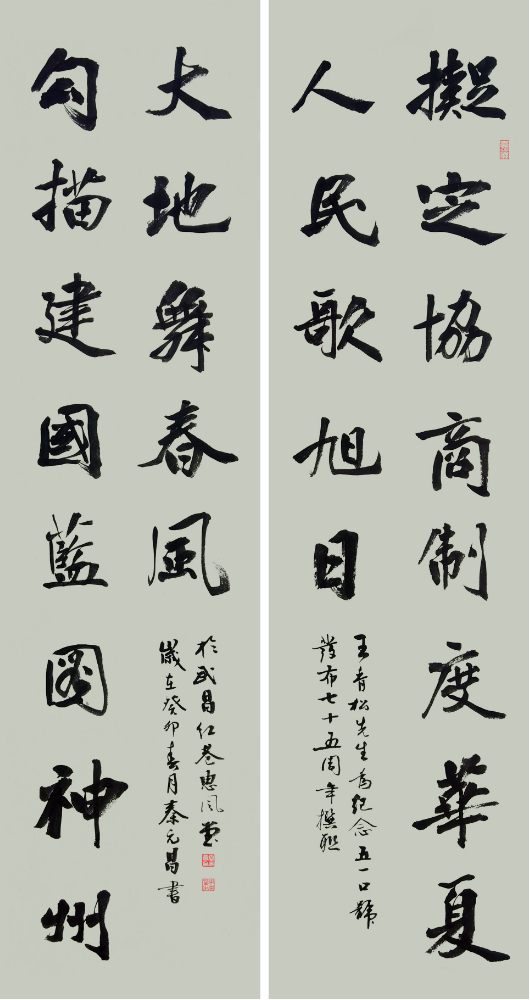 擬定協商制度華夏
人民歌旭日
王青松先生為紀念五一口號
發布七十五周年撰聯
勾描建國藍圖神州
大地舞春風
歲在癸卯春月秦元昌書
於武昌红巷惠风堂